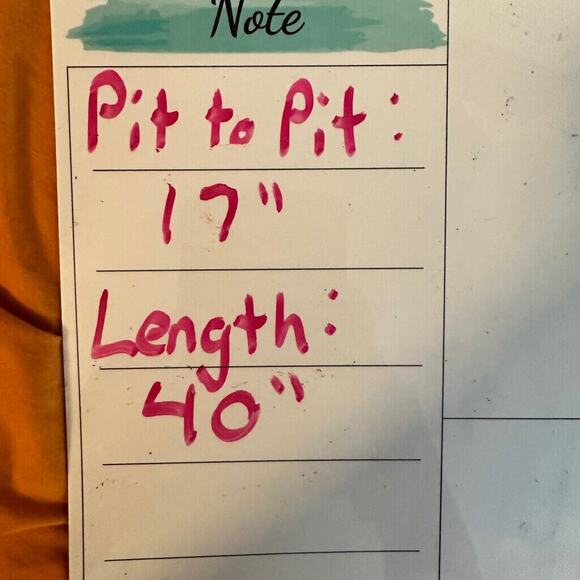 Note
Pit to Pit:
17"
Length:
40"